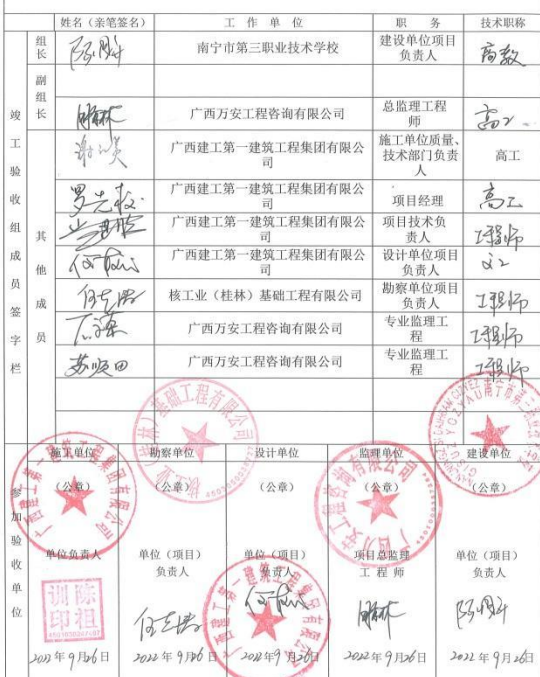 姓名（亲笔签名） 工作单位 职务 技术职称
竣工验收组成员签字栏
组长 南宁市第三职业技术学校 建设单位项目负责人 高教
副组长
广西万安工程咨询有限公司 总监理工程师 高工
其他成员
广西建工第一建筑工程集团有限公司 施工单位质量、技术部门负责人 高工
罗先敏 广西建工第一建筑工程集团有限公司 项目经理 高工
广西建工第一建筑工程集团有限公司 项目技术负责人 工程师
广西建工第一建筑工程集团有限公司 设计单位项目负责人
核工业（桂林）基础工程有限公司 勘察单位项目负责人 工程师
广西万安工程咨询有限公司 专业监理工程 工程师
苏顺田 广西万安工程咨询有限公司 专业监理工程 工程师
参加验收单位
施工单位 勘察单位 设计单位 监理单位 建设单位
（公章） （公章） （公章） （公章） （公章）
单位负责人 单位（项目）负责人 单位（项目）负责人 项目总监理工程师 单位（项目）负责人
2022年9月26日 2022年9月26日 2022年9月26日 2022年9月26日 2022年9月26日
广西建工第一建筑工程集团有限公司
核工业（桂林）基础工程有限公司
广西建工第一建筑工程集团有限公司
广西万安工程咨询有限公司
南宁市第三
陈祖训印